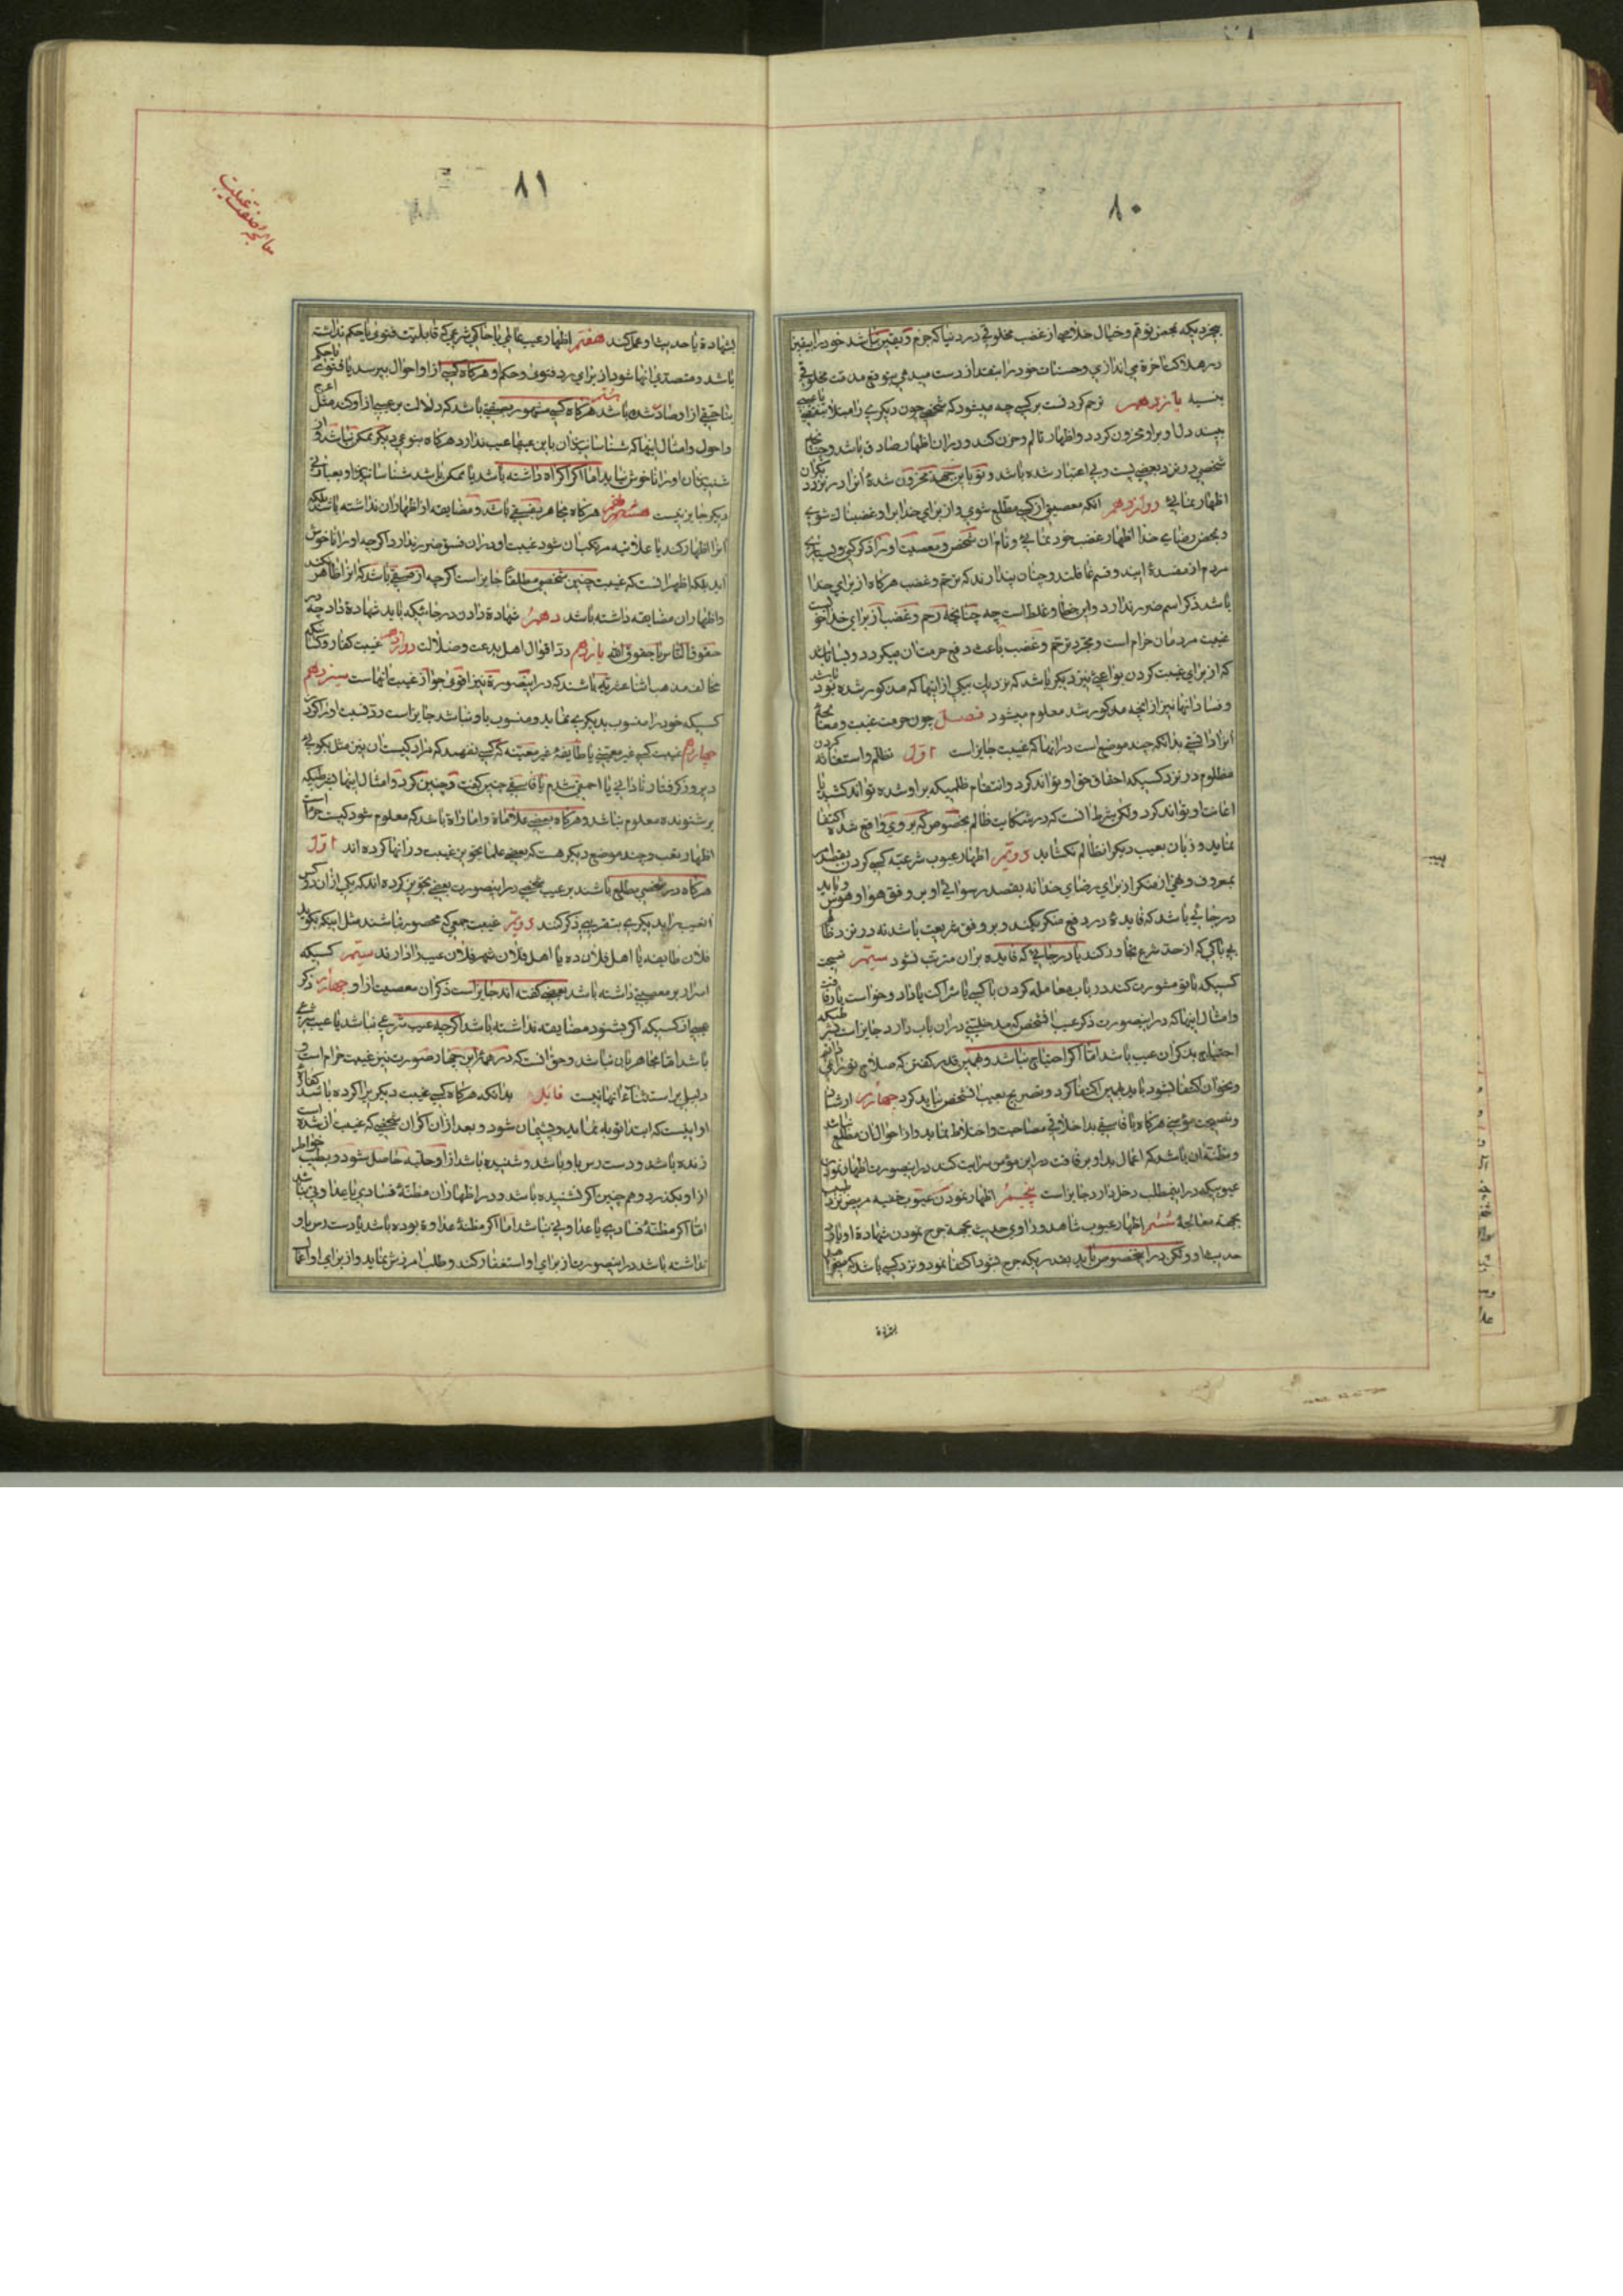 ۸۰
بمجرد یکه بمحض توهم و خیال خلاصی از غضب مخلوقی در دنیا که جزم و یقین نباشد خود را یقین
در هلاکت آخرة می اندازی و حسنات خود را بنقد از دست میدهی بتوقع مذمت مخلوقی
بنسیه یازدهم ترحم کردنست بر کسی چه میشود که شخص چون دیگری را مبتلا بنقص یا عیبی
بیند دل او بر او محزون گردد و اظهار تالم و حزن کند و در آن اظهار صادق باشد و چنانچه
شخصی در نزد بعضی پست و بی اعتبار شده باشد و تو باین جهت محزون شدهٔ آنرا در نزد دیگران
اظهار نمائی دوازدهم آنکه معصیتی از کسی مطلع شوی و از برای خدا بر او غضبناک شوی
و بمحض رضای خدا اظهار غضب خود نمائی و نام آن شخص و معصیت او را ذکر کنی و بسیاری
مردم از مفسدهٔ این دو قسم غافلند و چنان پندارند که ترحم و غضب هرگاه از برای خدا
باشد ذکر اسم ضرر ندارد و این خطا و غلط است چه چنانچه رحم و غضب از برای خدا خوبست
غیبت مردمان حرام است و مجرد ترحم و غضب باعث دفع حرمت آن نمیگردد و بسا باشد
که از برای غیبت کردن بواعثی نیز دیگر باشد که نزدیک بیکی از اینها که مذکور شده بود باشد
و فساد آنها نیز از آنچه مذکور شد معلوم میشود فصل چون حرمت غیبت و معنای
آنرا دانستی بدانکه چند موضع است در آنها که غیبت جایز است اول تظلم و استغاثه کردن
مظلوم در نزد کسیکه احقاق حق او تواند کرد و انتقام ظلمیکه بر او شده تواند کشید یا
اعانت او تواند کرد ولکن شرط آنست که در شکایت ظالم بخصوص که بر وی واقع شده اکتفا
نماید و زبان بعیب دیگر آن ظالم نگشاید دویم اظهار عیوب شرعیه کسی کردن بقصد امر
بمعروف و نهی از منکر از برای رضای خدا نه بقصد رسوائی او بر وفق هوا و هوس و باید
در جائی باشد که فایده در دفع منکر بکند و بر وفق شریعت باشد نه در نزد ظالم
بی باکی که از حد شرع تجاوز کند یا در جائی که فایده بر آن مترتب نشود سیم نصیحت
کسیکه با تو مشورت کند در باب معامله کردن با کسی یا شراکت یا داد و خواست یا رفاقت
و امثال اینها که در اینصورت ذکر عیب آن شخص که مدخلیتی در آن باب دارد جایز است بشرطیکه
احتیاج بذکر آن عیب باشد اما اگر احتیاج نباشد و همین قدر گفتن که صلاح تو را نمی دانم
و بخوان اکتفا شود باید بهمین اکتفا کرد و تصریح بعیب آن شخص نباید کرد چهارم ارشاد
و نصیحت مؤمنی هرگاه با فاسقی بد اخلاقی مصاحبت و اختلاط نماید و از احوال آن مطلع نباشد
و مظنه آن باشد که اعمال بد او برفاقت در این مؤمن سرایت کند در اینصورت اظهار نمودن
عیوبیکه در این مطلب دخل دارد جایز است پنجم اظهار نمودن عیوب خفیه مریض نزد طبیب
بجهة معالجهٔ ششم اظهار عیوب شاهد و راوی حدیث بجهة جرح نمودن شهادة او یا رد
حدیث او ولکن در اینخصوص باید بقدریکه جرح شود اکتفا نمود و نزد کسی باشد که میخواهد
بشهادة
۸۱
معالجه صفت غیبت
بشهادة یا حدیث او عمل کند هفتم اظهار عیب عالمی یا حاکم شرعی که قابلیت فتوی یا حکم نداشته
باشد و متصدی آنها شود از برای رد فتوی و حکم او هرگاه کسی از او احوال بپرسد یا فتوی یا حکم
بناحقی از او صادر شده باشد هشتم هرگاه کسی مشهور بصفتی باشد که دلالت بر عیبی از او کند مثل اعرج
و احول و امثال اینها که شناسانیدن آن باین عیبها عیب ندارد هرگاه بنوعی دیگر ممکن نباشد و از
شنیدن آن او را ناخوش نیاید اما اگر اکراه داشته باشد یا ممکن باشد شناسانیدن او بعبارتی
دیگر جایز نیست هرگاه متجاهر بفسقی باشد و مضایقه از اظهار آن نداشته باشد بلکه
آنرا اظهار کند یا علانیه مرتکب آن شود غیبت او در آن فسق ضرر ندارد اگرچه او را ناخوش
آید بلکه اظهر آنست که غیبت چنین شخص مطلقا جایز است اگرچه از فسقی باشد که آنرا ظاهر نکند
و اظهار آن مضایقه داشته باشد دهم شهادة دادن در جائیکه باید شهادة داد چه در
حقوق الناس یا حقوق الله یازدهم رد اقوال اهل بدعت و ضلالت دوازدهم غیبت کفار و کسانیکه
مخالف مذهب اثناعشریه باشند که در اینصورة نیز اقوی جواز غیبت آنهاست سیزدهم
کسیکه خود را منسوب بدیگری نماید و منسوب باو نباشد جایز است رد نسبت او را کردن
چهاردهم غیبت کسی غیر معینی یا طایفهٔ غیر معینه که کسی نفهمد که مراد کیست آن چنین مثل بگوئی
دیروز گرفتار نادانی یا احمقی شدم یا فاسقی چنین گفت و چنین کرد و امثال اینها بشرطیکه
بر شنونده معلوم نباشد و هرگاه بعضی علامات و امارات باشد که معلوم شود کیست حرام است
اظهار تعجب و چند موضع دیگر هست که بعضی علما تجویز غیبت در آنها کرده اند اول
هرگاه در شخصی مطلع باشند بر عیب شخصی در اینصورت بعضی تجویز کرده اند که یکی از آن دو کس
آنعیب را بدیگری بتقریبی ذکر کنند دویم غیبت جمعی که محصور نباشند مثل اینکه بگوید
فلان طایفه یا اهل فلان ده یا اهل فلان شهر فلان عیب را دارند سیم کسیکه
اصرار بر معصیتی داشته باشد بعضی گفته اند جایز است ذکر آن معصیت از او چهارم ذکر
عیبی از کسیکه اگر بشنود مضایقه نداشته باشد اگرچه عیب شرعی نباشد یا عیب شرعی
باشد اما متجاهر بآن نباشد و حق آنست که در همهٔ این چهار صورت نیز غیبت حرام است و
دلیل بر استثناء آنها نیست بدانکه هرگاه کسی غیبت دیگریرا کرده باشد کفارهٔ
او اینست که ابتدا توبه نماید و پشیمان شود و بعد از آن اگر آن شخصی که غیبت از شده است
زنده باشد و دست رس باو باشد و شنیده باشد از او حلیه حاصل شود و بطیب خواطر
از او بگذرد و همچنین اگر نشنیده باشد و در اظهار آن مظنهٔ فسادی یا عداوتی نباشد
اما اگر مظنهٔ فسادی یا عداوتی نباشد اما اگر مظنهٔ عداوة بوده باشد یا دست رس باو
نداشته باشد در اینصورت از برای او استغفار کند و طلب آمرزش نماید و از برای او اعمال